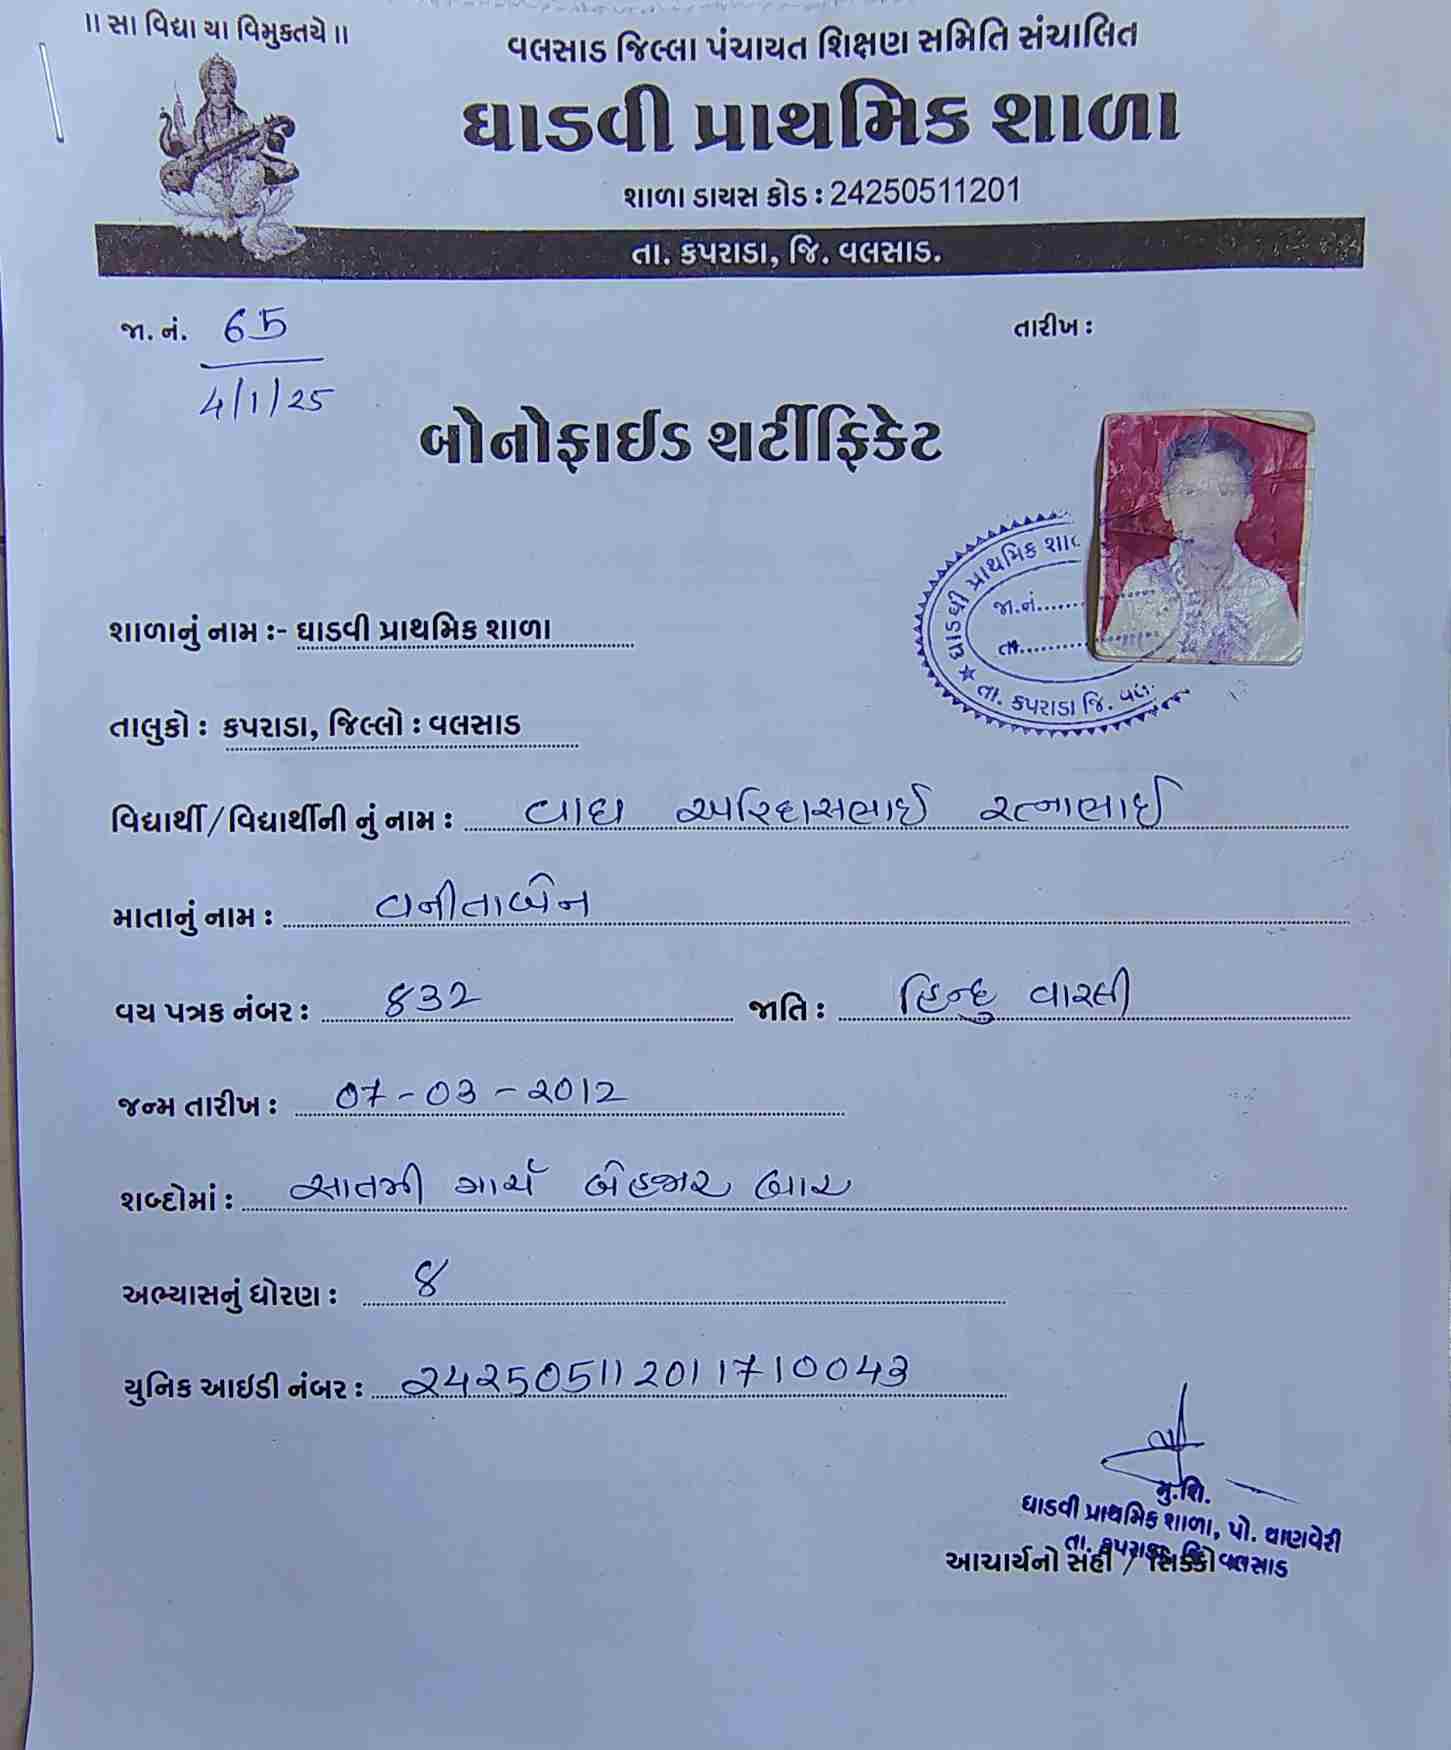 ॥ સા વિદ્યા યા વિમુક્તયે ॥
વલસાડ જિલ્લા પંચાયત શિક્ષણ સમિતિ સંચાલિત
ઘાડવી પ્રાથમિક શાળા
શાળા ડાયસ કોડ : 24250511201
તા. કપરાડા, જિ. વલસાડ.
જા. નં. 65
4/1/25
તારીખ :
બોનોફાઈડ શર્ટીફિકેટ
ઘાડવી પ્રાથમિક શાળ
જા.નં.......
તા..........
તા. કપરાડા જિ. વલ.
શાળાનું નામ :- ઘાડવી પ્રાથમિક શાળા
તાલુકો : કપરાડા, જિલ્લો : વલસાડ
વિદ્યાર્થી / વિદ્યાર્થીની નું નામ : વાઘ અરિદાસભાઈ રત્નાભાઈ
માતાનું નામ : વનીતાબેન
વય પત્રક નંબર : 832 જાતિ : હિન્દુ વારલી
જન્મ તારીખ : 07-03-2012
શબ્દોમાં : સાતમી માર્ચ બેહજાર બાર
અભ્યાસનું ધોરણ : ૪
યુનિક આઈડી નંબર : 242505112011710043
મુ.શિ.
ઘાડવી પ્રાથમિક શાળા, પો. વાણવેરી
તા. કપરાડા જિ. વલસાડ
આચાર્યનો સહી / સિક્કો